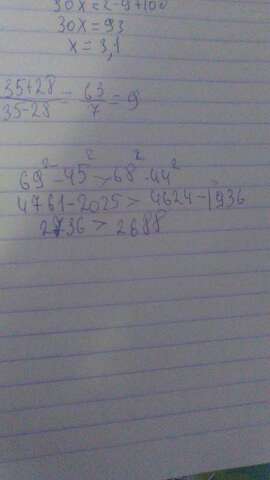 30x=2-9+100
30x=93
x=3,1
35+28/35-28=63/7=9
69²-45²>68²-44²
4761-2025>4624-1936
2736>2688